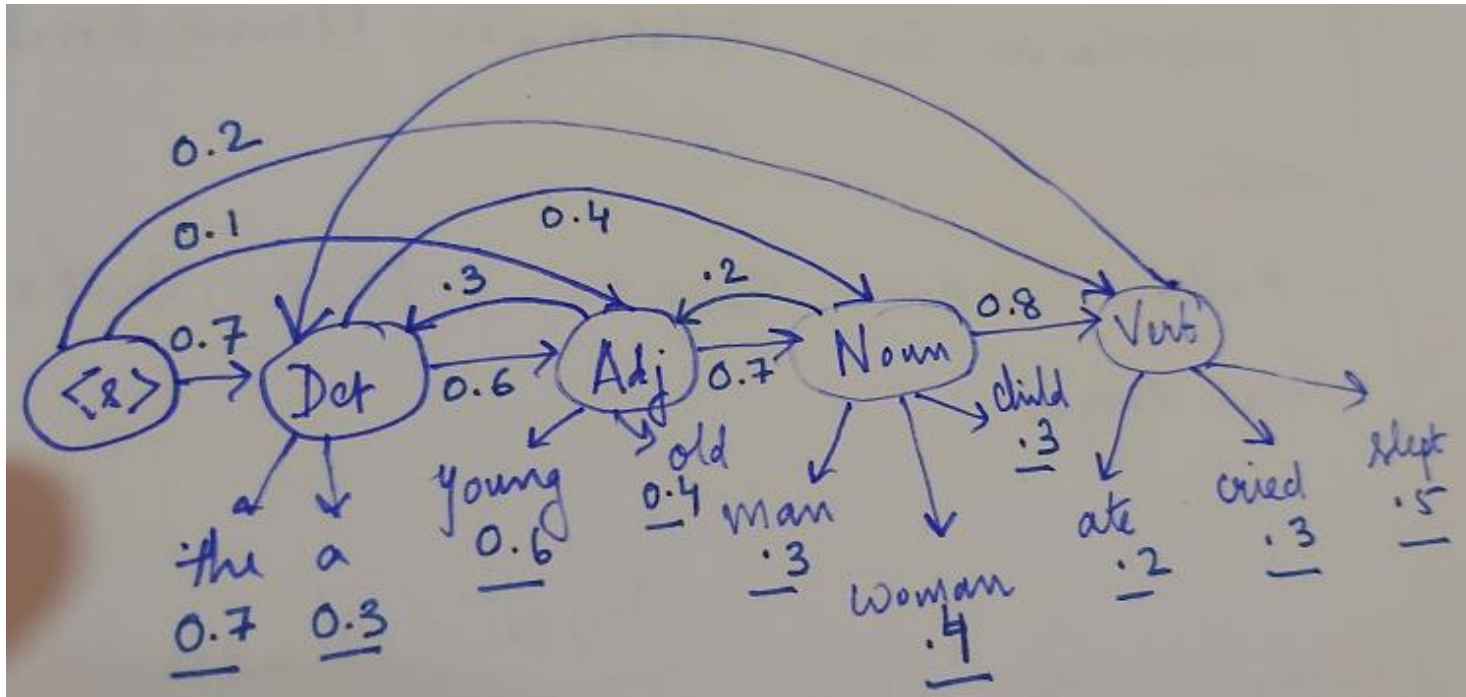 0.2
0.1
0.4
.3
.2
0.7
0.6
0.7
0.8
<s>
Det
Adj
Noun
Verb
the
0.7
a
0.3
young
0.6
old
0.4
man
.3
woman
.4
child
.3
ate
.2
cried
.3
slept
.5